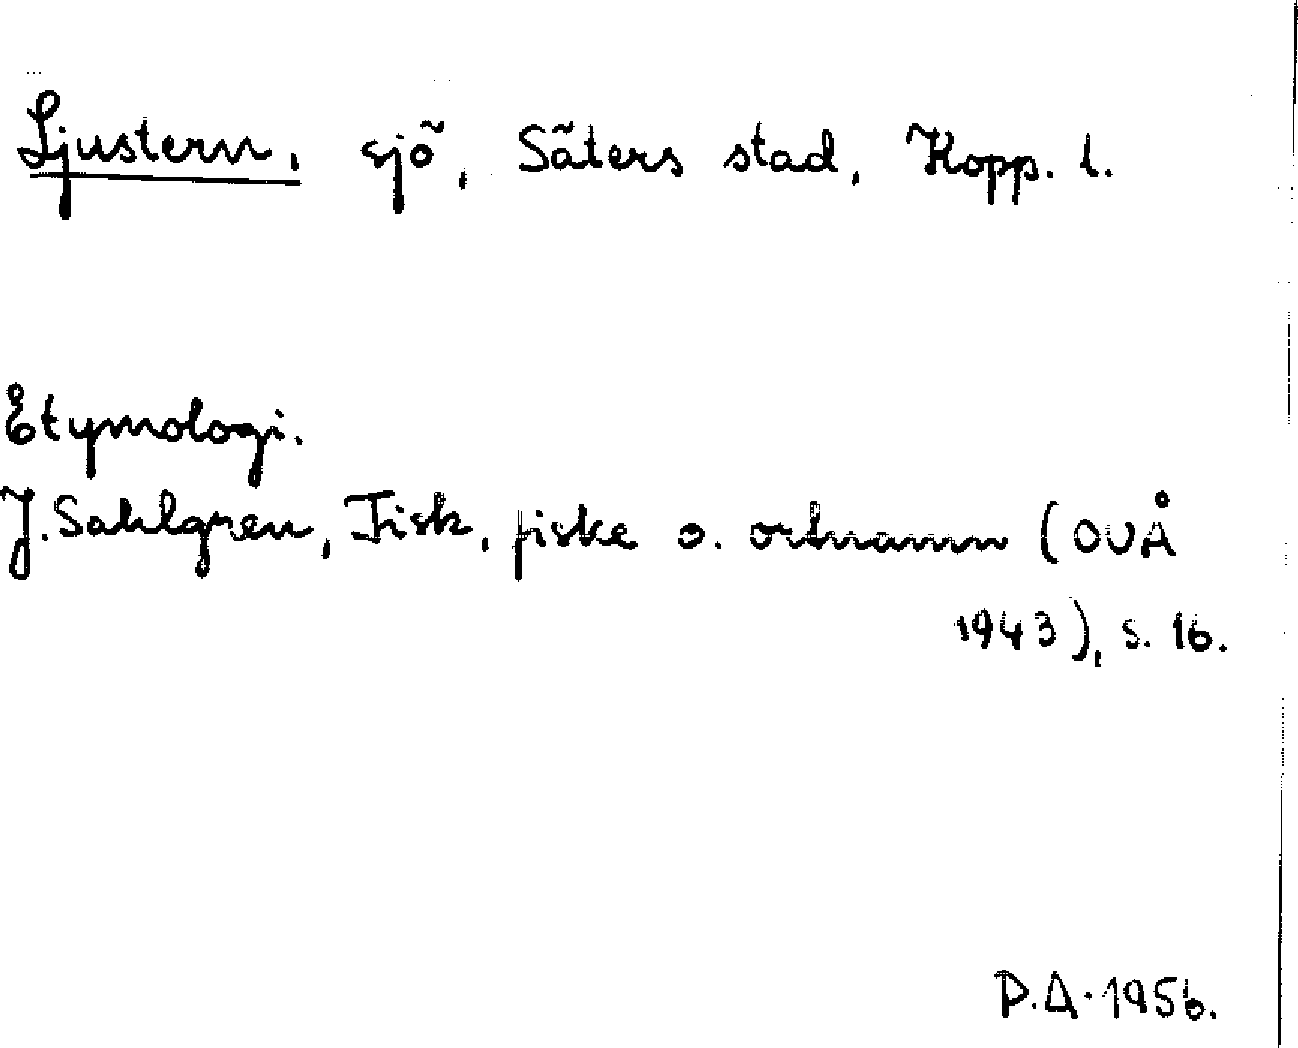 Ljustern, sjö, Säters stad, Kopp. l.
Etymologi.
J. Sahlgren, Fisk, fiske o. ortnamn (OUÅ
1943), s. 16.
P.A. 1956.